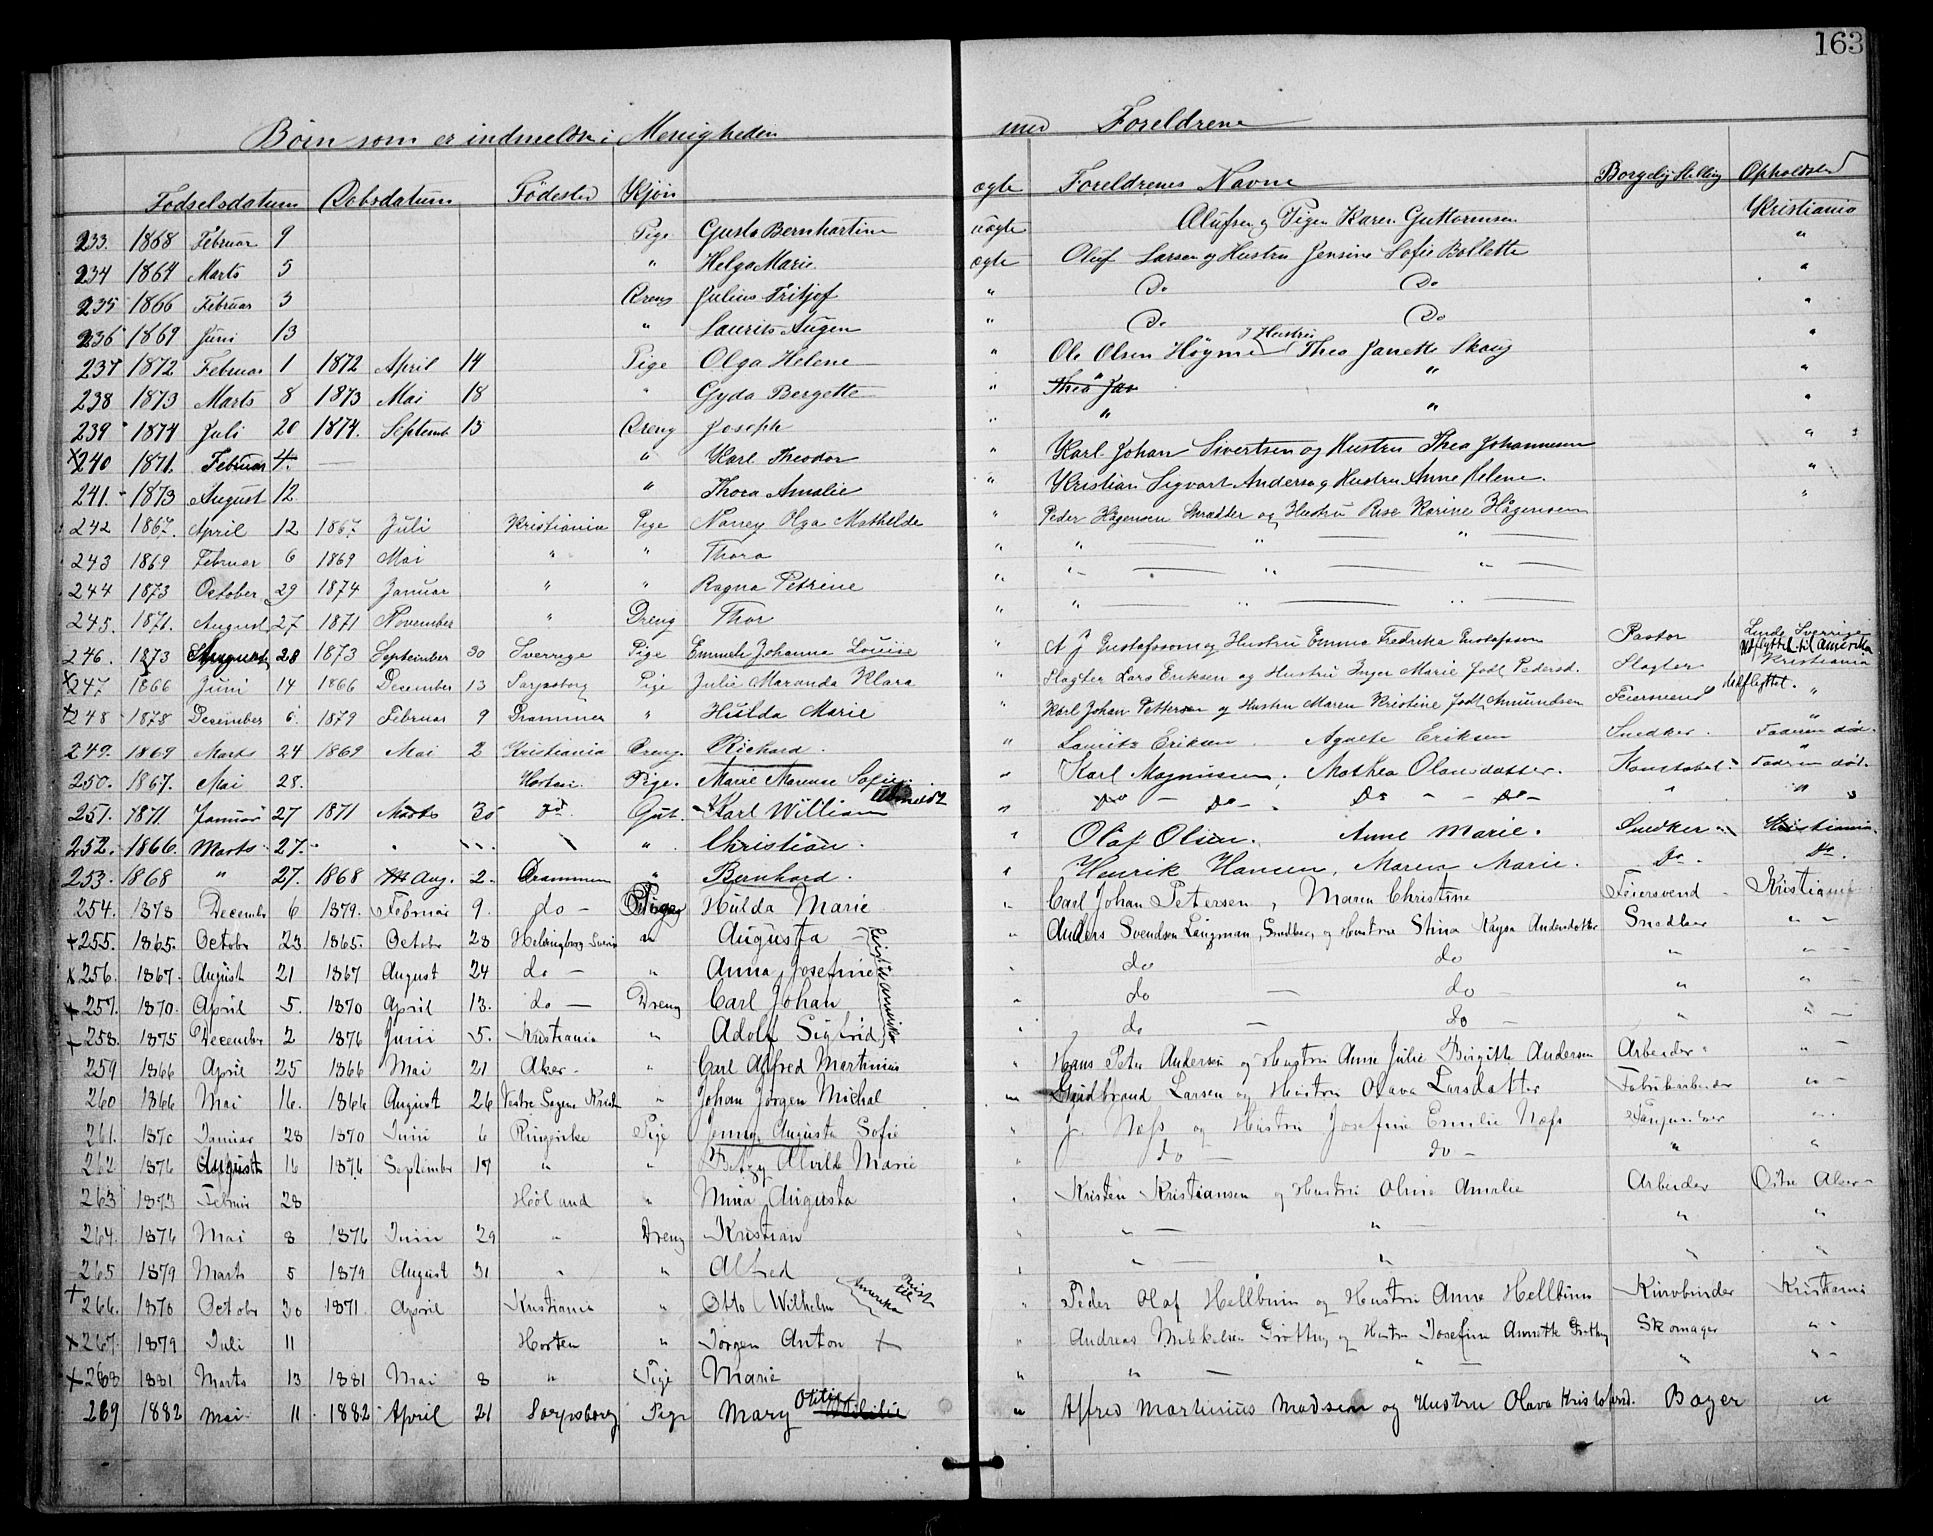 163
Børn som er indmeldte i Menigheden med Foreldrene
Fødselsdatum Døbsdatum Fødested Kjøn ægte Foreldrenes Navne Borgelig Stilling Opholdsted
233. 1868 Februar 9 Pige Gusta Bernhartine uægte Olufsen og Pigen Karen Guttormsen Kristiania
234 1864 Marts 5 " Helga Marie ægte Oluf Larsen og Hustru Jensine Sofie Bollette "
235 1866 Februar 3 Dreng Julius Fritjof " Do Do "
236 1869 Juni 13 " Laurits Augen " Do Do "
237 1872 Februar 1 1872 April 14 Pige Olga Helene " Ole Olsen Høyme og Hustru Thea Janette Skaug "
238 1873 Marts 8 1873 Mai 18 " Gyda Bergette " Thea Jan " "
239 1874 Juli 20 1874. Septemb 13 Dreng Joseph " " " "
x 240 1871. Februar 4. " Karl Theodor " Karl Johan Sivertsen og Hustru Thea Johannesen "
241. 1873 August 12. " Thora Amalie " Kristian Sigvart Anderson og Hustru Anne Helene. "
242 1867. April 12 1867. Juli Kristiania Pige Nancy Olga Mathilde " Peder Hågensen Skrædder og Hustru Rise Karine Hågensen "
243 1869 Februar 6 1869 Mai " " Thora " " " "
244 1873 October 29 1874 Januar " " Ragna Petrine " " " "
245. 1871. August 27 1871 November " Dreng Thor " " " "
246. 1873 August 28 1873 September 30 Sverrige Pige Emmeli Johanna Louise " A J Gustafsson og Hustru Emma Fredrika Gustafsson Pastor Linde Sverrige
x 247. 1866 Juni 14 1866 December 13 Sarpsborg Pige Julie Maranda Klara " Slagter Lars Eriksen og Hustru Inger Marie født Pedersd. Slagter Udflyttet til Amerika Kristiania
+ 248 1878 Desember 6. 1879 Februar 9 Drammen " Hulda Marie " Karl Johan Pettersen og Hustru Maren Kristine født Amundsen Feiersvend Udflyttet. "
249. 1869 Marts 24 1869 Mai 2 Kristiania Dreng. Richard. " Lauritz Eriksen. Agnete Eriksen Snedker. Faderen død. "
250. 1867. Mai 28. Horten. Pige. Marie Sofie. " Karl Magnusen, Mathea Olausdatter. Konstabel. Faderen død. "
251. 1871. Januar 27 1871 Marts 30 do. Gut. Karl William Udmeldt " Do - Do - Do - Do - " "
252. 1866. Marts 27. " Christian. " Olaf Olsen. Anne Marie. Snedker. Kristiania.
253. 1868 " 27. 1868 Aug. 2. Drammen " Bernhard. " Henrik Hansen, Maren Marie. Do. Do.
254. 1878 Decembr 6 1879. Februar 9. do - Pige Hulda Marie " Carl Johan Petersen, Maren Christine Feiersvend Kristiania
+ 255. 1865. Octobr 23 1865. Octobr 28 Helsingborg Sverig " Augusta " Anders Svendsen Langman, Snedker, og Hustru Stina Kaysa Andersdotter Snedker " -
x 256. 1867. August 21 1867 August 24 do - " Anna Josefine reist til Amerika " do do " " -
+ 257. 1870. April 5. 1870 April 13. do - Dreng Carl Johan " do - do - " " -
+ 258. 1875 Decembr 2 1876 Juni 5. Kristiania " Adolf Sigfrid " do - do - " " -
259 1866 April 25 1866 Mai 21 Aker - " Carl Alfred Martinius " Hans Peter Andersen og Hustru Anne Julie Birgitte Andersen Arbeider " -
260 1866 Mai 16. 1866 August 26 Vestre Sogene Krist " Johan Jørgen Michal " Gudbrand Larsen og Hustru Olava Larsdatter Fabrikarbeider " -
261. 1870 Januar 28 1870 Juni 6 Ringerike Pige Jenny Augusta Sofie " J. Næss og Hustru Josefine Emilie Næss " -
262 1876 August 16 1876. September 17 " " Betzy Alvilde Marie " do - do - " "
263 1873 Februar 28 Høland " Mina Augusta " Kristen Kristiansen og Hustru Oline Amalie Arbeider Østre Aker -
264. 1876 Mai 8 1876 Juni 29 " Dreng Kristian " " - " " "
265 1879 Marts 5 1879 August 31 " " Alfred " " - " " "
+ 266. 1870 Octobr 30 1871. April Kristiania " Otto Wilhelm reist til Amerika " Peder Olaf Hellbum og Hustru Anne Hellbum Kurvbinder Kristiania
x 267. 1879 Juli 11 Horten " Jørgen Anton + " Andreas Mikkelsen Grøtting og Hustru Josefine Annette Grøtting Skomager " -
x 268 1881 Marts 13 1881 Mai 8 " Pige Marie " " - " - " " -
269 1882 Mai 11 1882 April 21 Sarpsborg Pige Mary Otilie " Alfred Martinius Madsen og Hustru Olava Kristofersd. Bager "